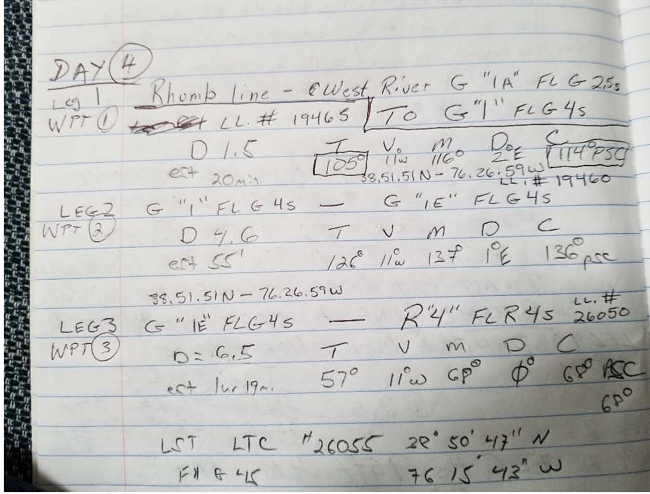 DAY 4
Leg 1 Rhumb line - West River G "1A" FL G 2.5s
WPT 1 LL. # 19465 To G "1" FL G 4s
D 1.5 T V m D C
est 20min 105° 11w 116° 2°E 114° PSC
38.51.51N - 76.26.59W
LL. # 19460
LEG2 G "1" FL G 4s — G "1E" FL G 4s
WPT 2 D 4.6 T V m D C
est 55' 126° 11°w 137° 1°E 136° psc
38.51.51N - 76.26.59W
LEG3 G "1E" FLG4s — R"4" FL R 4s LL. # 26050
WPT 3 D = 6.5 T V m D C
est 1hr 19m. 57° 11°w 68° ø° 68° PSC
68°
LST LTC #26055 38° 50' 47" N
76 15' 43" W